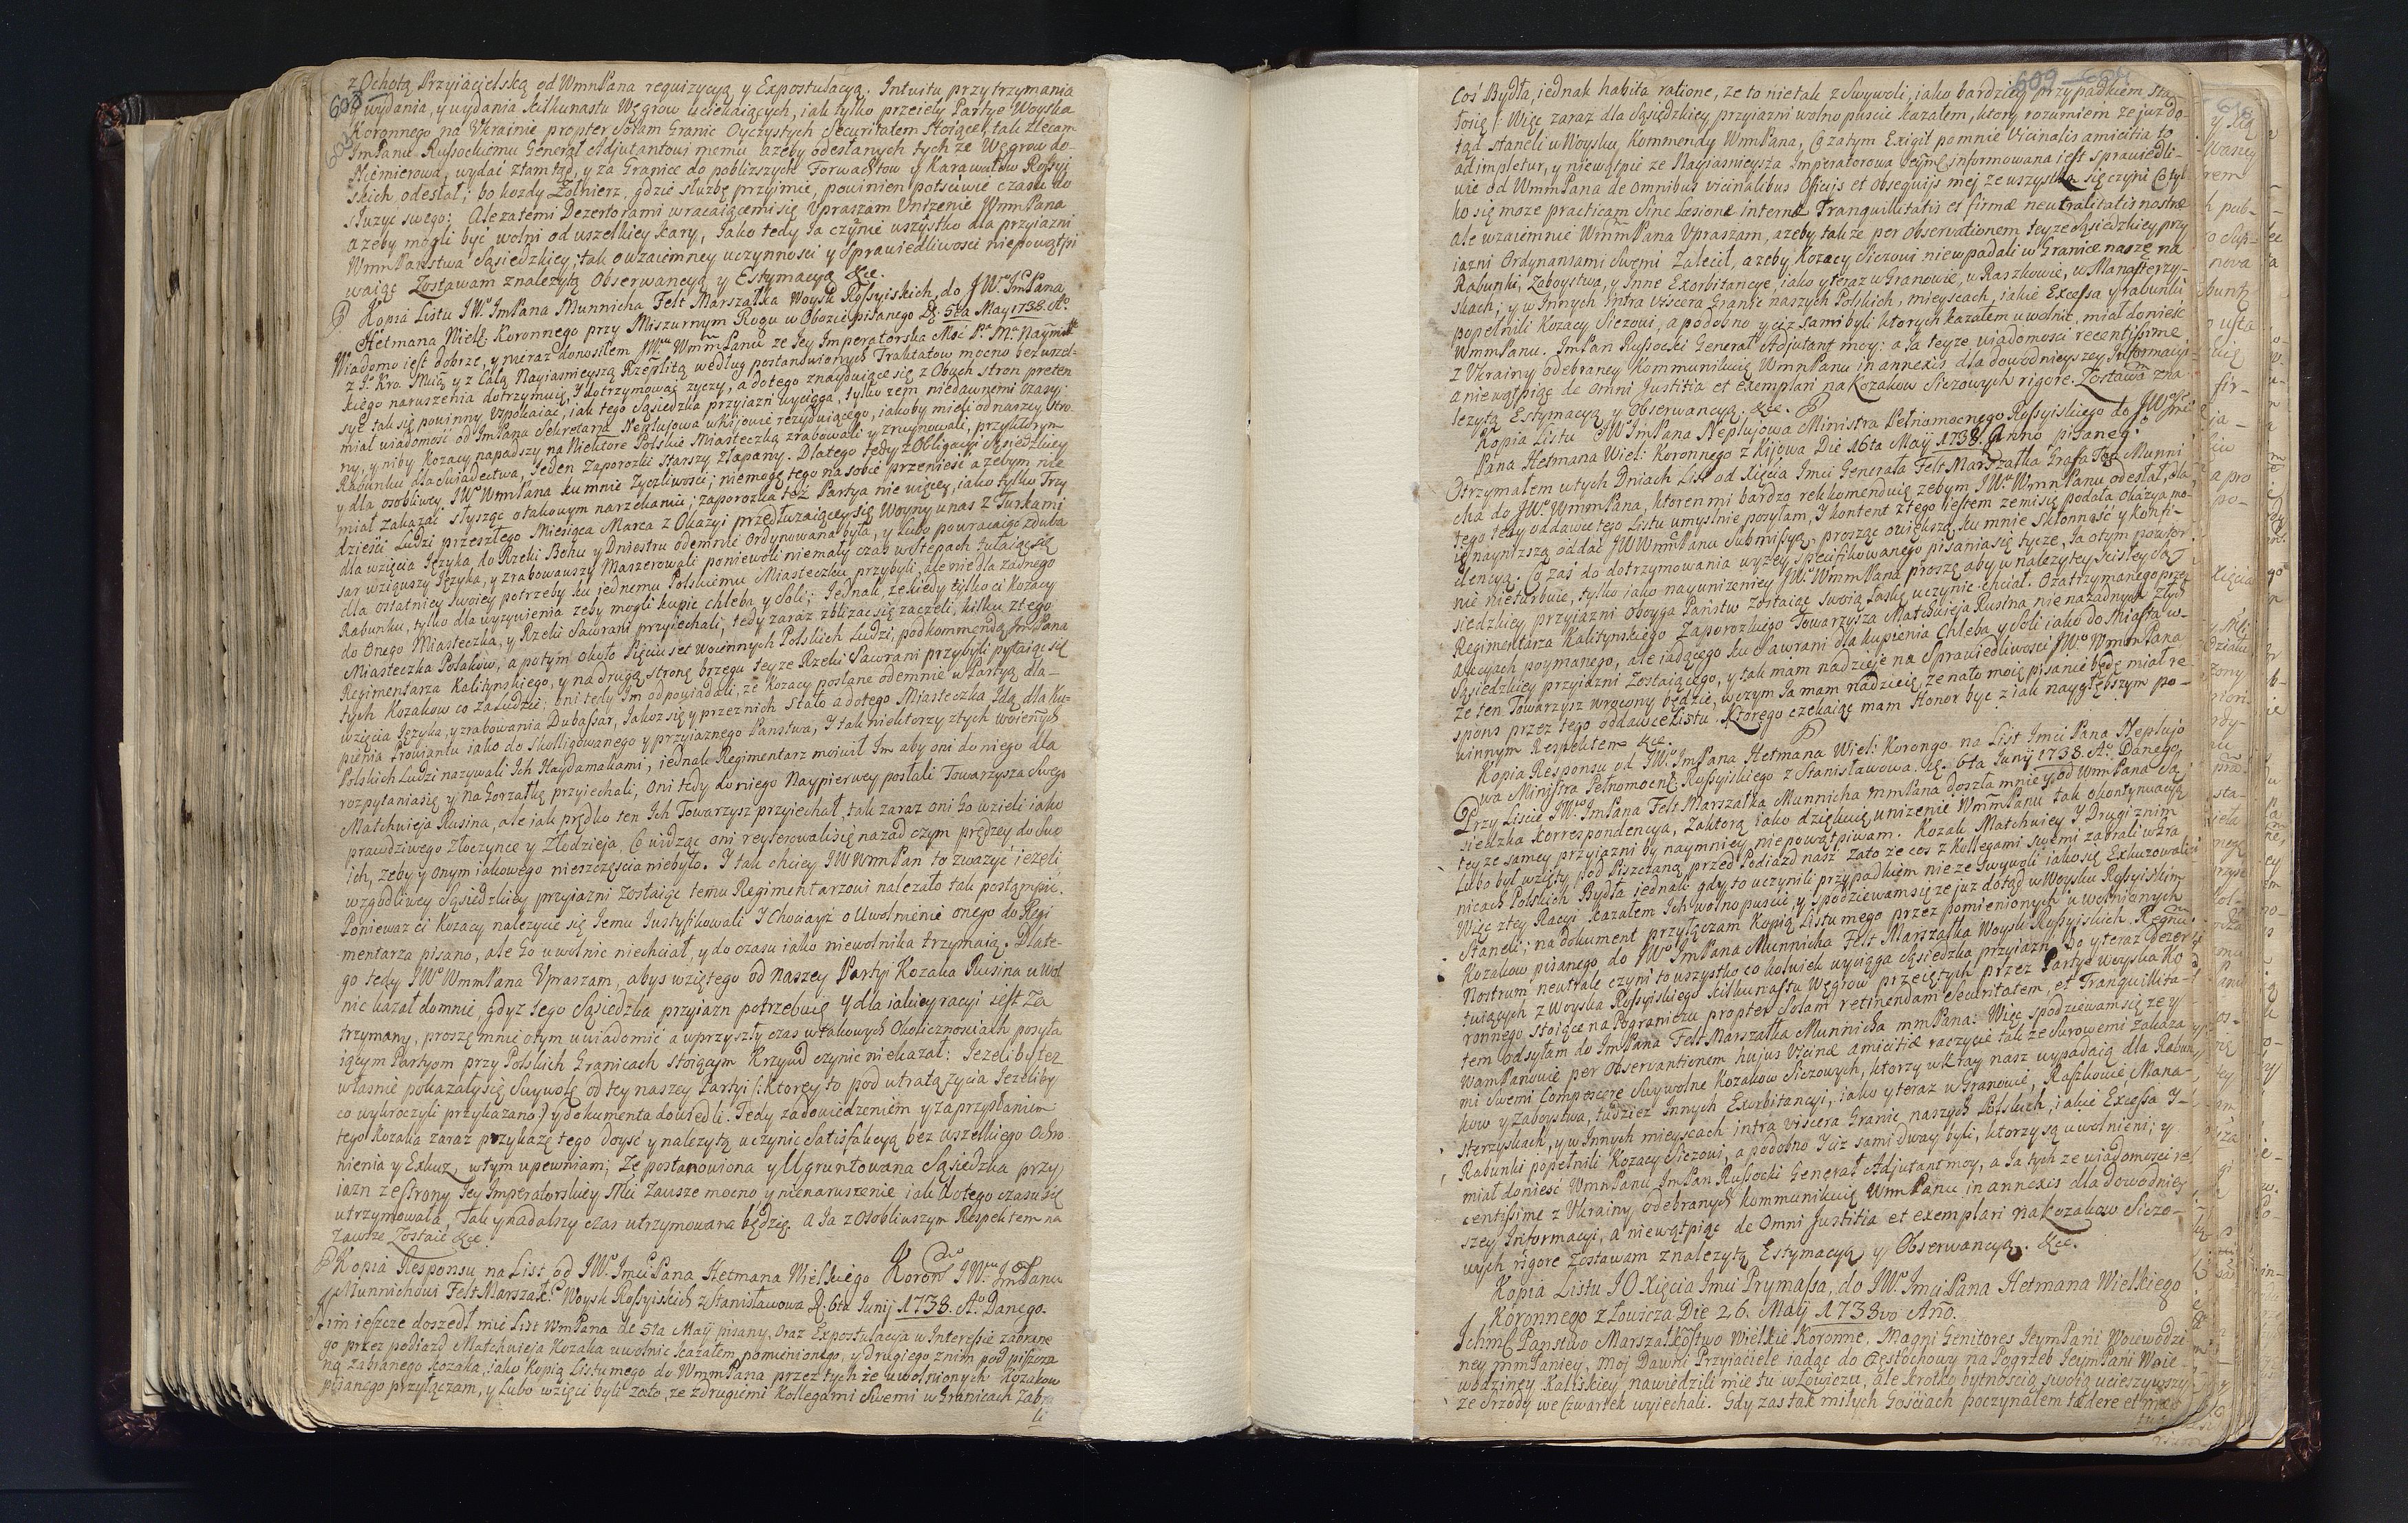 608
z Ochotą Przyiacielską od WmmPana requizycyą y Expostulacyą. Intuitu przytrzymania
y wydania, y wydania kilkunastu Węgrow uciekaiących, iak tylko przeięły Partye Woyska
Koronnego na Ukrainie propter Solam Granic Oyczystych Securitatem stoiące, tak zlecam
ImPanu Russockiemu General Adjutantowi memu ażeby odesłanych tych że Węgrow do
Niemierowa, wydać ztamtąd, y za Granice do poblizszych Forwachtow y Karawułow Rossyi-
skich odesłał; bo kozdy Zołnierz, gdzie służbę przyimie, powinien potściwie czasu do
służyć swego: Ale zatemi Dezertorami wracaiącemi się Upraszam Unizenie WmmPana
azeby mogli być wolni od wszelkiey kary, Jako tedy Ja czynie wszystko dla przyiazni
WmmPanstwa Sąsiedzkiey; tak o wzaiemney uczynnosci y Sprawiedliwosci niepowątpi
waiąc Zostawam znalezytą Obserwancyą y Estymacyą &c.
Kopia Listu JWo ImPana Munnicha Felt Marszałka Woysk Rossyiskich, do JWo ImPana
Hetmana Wielk: Koronnego przy Miszurnym Rogu w Obozie pisanego D. 5ta May 1738. Ao
Wiadomo iest dobrze, y nieraz donosiłem JWu WmmPanu ze Jey Imperatorska Mść Pa Ma Naymił
z Jo Kro. Mcią y z całą Nayiasnieyszą Rzeplitą według postanowionych Traktatow mocno bez wszel-
kiego naruszenia dotrzymuię, y dotrzymować zyczy, a dotego znayduiące się z Obuch stron preten
sye tak się powinny Uspokaiać, iak tego Sąsiedzka przyiazń wyciąga, tylko zem niedawnemi czasy
miał wiadomość od ImPana Sekretarza Neplujowa w Kijowie rezyduiącego, iakoby mieli od naszey stro
ny, y niby Kozacy napadszy na Niektore Polskie Miasteczka zrabowali y zruynowali, przyktorym
Rabunku dla Swiadectwa, Jeden Zaporozki starszy złapany. Dlatego tedy z Obligacyi Sąsiedzkiey
y dla osobliwey JWo WmPana ku mnie Zyczliwosci; niemogę tego na sobie przeniesć azebym nie
miał zakazać słysząc otakowym narzekaniu; zaporozka też Partya nie więcey, iako tylko Trzy
dzieści Ludzi przeszłego Miesiąca Marca z Okazyi przedłuzaiącey się Woyny u nas z Turkami
dla wzięcia Języka do Rzeki Bohu y Dniestru odemnie Ordynowana była, y lubo powracaiąc z Duba
sar wziąwszy Języka, y zrabowawszy Maszerowali poniewoli niemały czas w stepach tułaiąc się
dla ostatniey swoiey potrzeby ku jednemu Polskiemu Miasteczku przybyli, ale nie dla zadnego
Rabunku, tylko dla wyzywienia zeby mogli kupic chleba y Soli; Jednak, ze kiedy tylko ci Kozacy
do Onego Miasteczka, y Rzeki Sawrani przyiechali, tedy zaraz zbliżac się zaczeli, kilku z tego
Miasteczka Polakow, a potym około Pięciuset woiennych Polskich Ludzi, pod kommendą ImPana
Regimentarza Kalitynskiego, y na drugą stronę brzegu teyze Rzeki Sawrani przybyli pytaiąc się
tych Kozakow co za Ludzie; oni tedy Im odpowiadali, ze Kozacy posłane odemnie w Partyą dla-
wzięcia Języka, y zrabowania Dubassar, Jakoz się y przez nich stało a dotego Miasteczka Idą dla Ku-
pienia Prowiantu iako do Skolligowanego y przyiaznego Panstwa, I tak niektorzy ztych woiennych
Polskich Ludzi nazywali Ich Haydamakami, jednak Regimentarz mowił Im aby oni do niego dla
rozpytania się y na Gorzałkę przyiechali, Oni tedy do niego Naypierwey posłali Towarzysza Swego
Matchwieja Rusina, ale iak prędko ten Ich Towarzysz przyiechał, tak zaraz oni Go wzieli iako
prawdziwego złoczyncę y Złodzieja, Co widząc oni reyterowali się nazad czym prędzey do Swo
ich, żeby y onym iakowego nieszczęscia niebyło. I tak chciey JWWmPan to zważyć iezeli
wzgodliwey Sąsiedzkiey przyiazni zostaiąc temu Regimentarzowi nalezało tak postąmpić.
Poniewaz ci Kozacy nalezycie się Jemu Justyfikowali I Chociayż o Uwolnienie onego do Regi
mentarza pisano, ale Go uwolnic niechciał, y do czasu iako niewolnika trzymaią. Dlate-
go tedy JWo WmmPana Upraszam, abys wziętego od naszey Partyi Kozaka Rusina uwol
nić kazał do mnie, gdyz Jego Sąsiedzka przyiazn potrzebuię y dla iakiey racyi iest Za
trzymany, proszę mnie otym uwiadomić a w przyszły czas w takowych Okolicznosciach posyła
iącym Partyom przy Polskich Granicach stoiącym Krzywd czynic nie kazał: Jezeliby też
własnie pokazały się Swywole od tey naszey Partyi (: Ktorey to pod utratą życia Jezeliby
co wykroczyli przykazano:) y dokumenta dowiedli. Tedy zadowiedzeniem y zaprzysłaniem
tego Kozaka zaraz przykazę tego doysć y nalezytą uczynic Satisfakcyą bez wszelkiego Ochro
nienia y Exkuz, wtym upewniam; Ze postanowiona y Ugruntowana Sąsiedzka przy
iazn ze strony Jey Imperatorskiey Mci zawsze mocno y nienaruszenie iak dotego czasu się
utrzymowała, Tak y nadalszy czas utrzymowana będzie. a Ja z Osobliwszym Respektem na
zawsze Zostaię &c.
Kopia Responsu na List od JWo ImciPana Hetmana Wielkiego Koronnego JWu ImPanu
Munnichowi Felt Marszałk: Woysk Rossyiskich z Stanisławowa D. 6ta Junij 1738. Ao Danego.
Nim ieszcze doszedł mię List WmPana de 5ta Maij pisany, oraz Expostulacya w Interessie zabrane
go przez podiazd Matchwieja Kozaka uwolnic kazałem, pomienionego, y drugiego z nim pod pisczą
ną zabranego kozaka, iako Kopią Listu mego do WmmPana przez tych że uwolnionych Kozakow
pisanego przyłączam, y Lubo wzięci byli zato, ze zdrugiemi Kollegami Swemi w Granicach zabra
li
609
Coś Bydła, iednak habita ratione, ze to nie tak z Swywoli, iako bardziey przypadkiem, sta
ło się; Więc zaraz dla Sąsiedzkiey przyiazni wolno puscic kazałem, ktory rozumiem ze juz do-
tąd staneli w Woysku, Kommendy WmmPana, Co zatym Exigit pomnie vicinalis amicitia to
adimpletur, y niewątpię ze Nayiasnieysza Imperatorowa Jeymć informowana iest sprawiedli-
wie od WmmPana de Omnibus vicinalibus Officijs et Obsequijs mej ze wszystko się czyni Co tyl
ko się moze practicam Sine Laesione internae Tranquillitatis et firmae neutralitatis nostrae
ale wzaiemnie WmmPana Upraszam, azeby takze per Observationem teyze Sąsiedzkiey przy
iazni Ordynansami Swemi Zalecił, azeby Kozacy Siczowi niewpadali w Granice naszę na
Rabunki, Zaboystwa, y Inne Exorbitancye, iako y teraz w Granowie, w Raszkowie, w Manasterzy-
skach, y w Innych intra viscera Granic naszych Polskich, mieyscach, iakie Excessa y rabunki
popełnili Kozacy Siczowi, a podobno y ciz sami byli ktorych kazałem uwolnić, miał doniesć
WmmPanu. ImPan Russocki General Adjutant moy: a Ja teyze wiadomosci recentissime
z Ukrainy odebraney Kommunikuię WmmPanu in annexis dla dowodnieyszey Informacyi
a niewątpiąc de Omni Justitia et exemplari na Kozakow Siczowych rigore. Zostawam zna
lezytą Estymacyą y Obserwancyą. &c.
Kopia Listu JWo ImPana Neplujowa Ministra Pełnomocnego Rossyiskiego do JWo Jmć
Pana Hetmana Wiel: Koronnego z Kijowa Die 16ta Maij 1738. Anno pisaneg:o
Otrzymałem w tych Dniach List od Xięcia Imci Generała Felt Marszałka Grafa Munni
cha do JWo WmmPana, ktoren mi bardzo rekkomenduię zebym JWu WmmPanu odesłał, dla
tego tedy oddawce tego Listu umyslnie posyłam, y kontent z tego iestem ze mi się podała okazya mo-
ię naynizszą oddać JWWmmPanu Submissyą, prosząc o większą ku mnie skłonność y konfi-
dencyą. Co zaś do dotrzymowania wyżey specifikowanego pisania się tycze, Ja otym powtor
nie nieturbuię, tylko iako nayunizeniey JWo WmmPana proszę aby w nalezytey scisłey Są-
siedzkiey przyiazni Oboyga Państw zostaiąc swoią łaskę uczynic chciał. O zatrzymanego prze
Regimentarza Kalitynskiego Zaporozkiego Towarzysza Matchwieja Rusina nie na zadnych złych
akcyach poymanego, ale iadącego ku Sawrani dla kupienia Chleba y Soli iako do Miasta w-
Sąsiedzkiey przyiazni Zostaiącego, y tak mam nadzieję na Sprawiedliwosci JWo WmmPana
ze ten Towarzysz wrocony będzie, w czym Ja mam nadzieię, ze na to moię pisanie będę miał re-
spons przez tego oddawce Listu. Ktorego czekaiąc mam Honor byc z iak naygłębszym po-
winnym Respektem &c.
Kopia Responsu od JWo ImPana Hetmana Wiel: Korongo na List Imci Pana Neplujo
wa Ministra Pełnomocnę. Rossyiskiego z Stanisławowa. D. 6ta Junij 1738. Ao Danego
Przy Liscie JWo ImPana Felt Marszałka Munnicha mmPana doszła mnie y od WmmPana Są
siedzka korrespondencya, Zaktorą iako dziękuię unizenie WmmPanu tak o kontynuacyą
teyze samey przyiazni by naymniey niepowątpiwam. Kozak Matchwiey y Drugi z nim
Lubo był wzięty pod Piszczaną przed Podiazd nasz zato ze cos z kollegami swemi zabrali w Gra
nicach Polskich Bydła iednak gdy to uczynili przypadkiem nie ze Swywoli iako się Exkuzowali
Więc z tey Racyi kazałem Ich wolno puscic, y spodziewam się ze juz dotąd w Woysku Rossyiskim
Staneli; na dokument przyłączam Kopią Listu mego przez pomienionych uwolnionych
Kozakow pisanego do JWo ImPana Munnicha Felt Marszałka Woysk Rossyiskich. Regnum
Nostrum neutrale czyni to wszystko co kolwiek wyciąga Sąsiedzka przyiazn, Jo y teraz Dezer
tuiących z Woyska Rossyiskiego kilkunastu Węgrow przeciętych przez Partye woyska Ko
ronnego stoiące na Pograniczu propter Solam retinendam Securitatem, et Tranquillita-
tem odsyłam do ImPana Felt Marszałka Munnicha mmPana: Więc spodziewam się ze y
WamPanowie per Observantionem hujus Vicinae amicitiae raczycie takze Surowemi zakaza
mi Swemi Compescere Swywolne Kozakow Siczowych, ktorzy w Kray nasz wypadaią dla Rabun
kow y Zaboystwa, tudziez Innych Exorbitancyi, iako y teraz w Granowie, Raszkowie, Mana-
sterzyskach, y w Innych mieyscach intra viscera Granic naszych Polskich, iakie Excessa y-
Rabunki popełnili Kozacy Siczowi, a podobno Iciż sami dway byli, ktorzy są uwolnieni; y
miał doniesć WmmPanu ImPan Russocki Generał Adjutant moy, a Ja tych ze wiadomosci re
centissime z Ukrainy odebranych kommunikuię WmmPanu in annexis dla Dowodniey
szey Informacyi, a niewątpiąc de Omni Justitia et exemplari na Kozakow Siczo-
wych rigore Zostawam znalezytą Estymacyą y Obserwancyą. &c.
Kopia Listu JO Xięcia Imci Prymassa, do JWo ImciPana Hetmana Wielkiego
Koronnego z Łowicza Die 26. Maij 1738vo Ano.
Ichmć Panstwo Marszałkostwo Wielkie Koronne, Magni Genitores JeymPani Woiewodzi
ney mmPaniey, Moj Dawni Przyiaciele iadąc do Częstochowy na Pogrzeb JeymPani Woie-
wodziney Kaliskiey nawiedzili mię tu w Łowiczu, ale krotko bytnoscią swoią ucieszywszy
ze Srzody we Czwartek wyiechali. Gdy zas tak miłych Gościach poczynałem